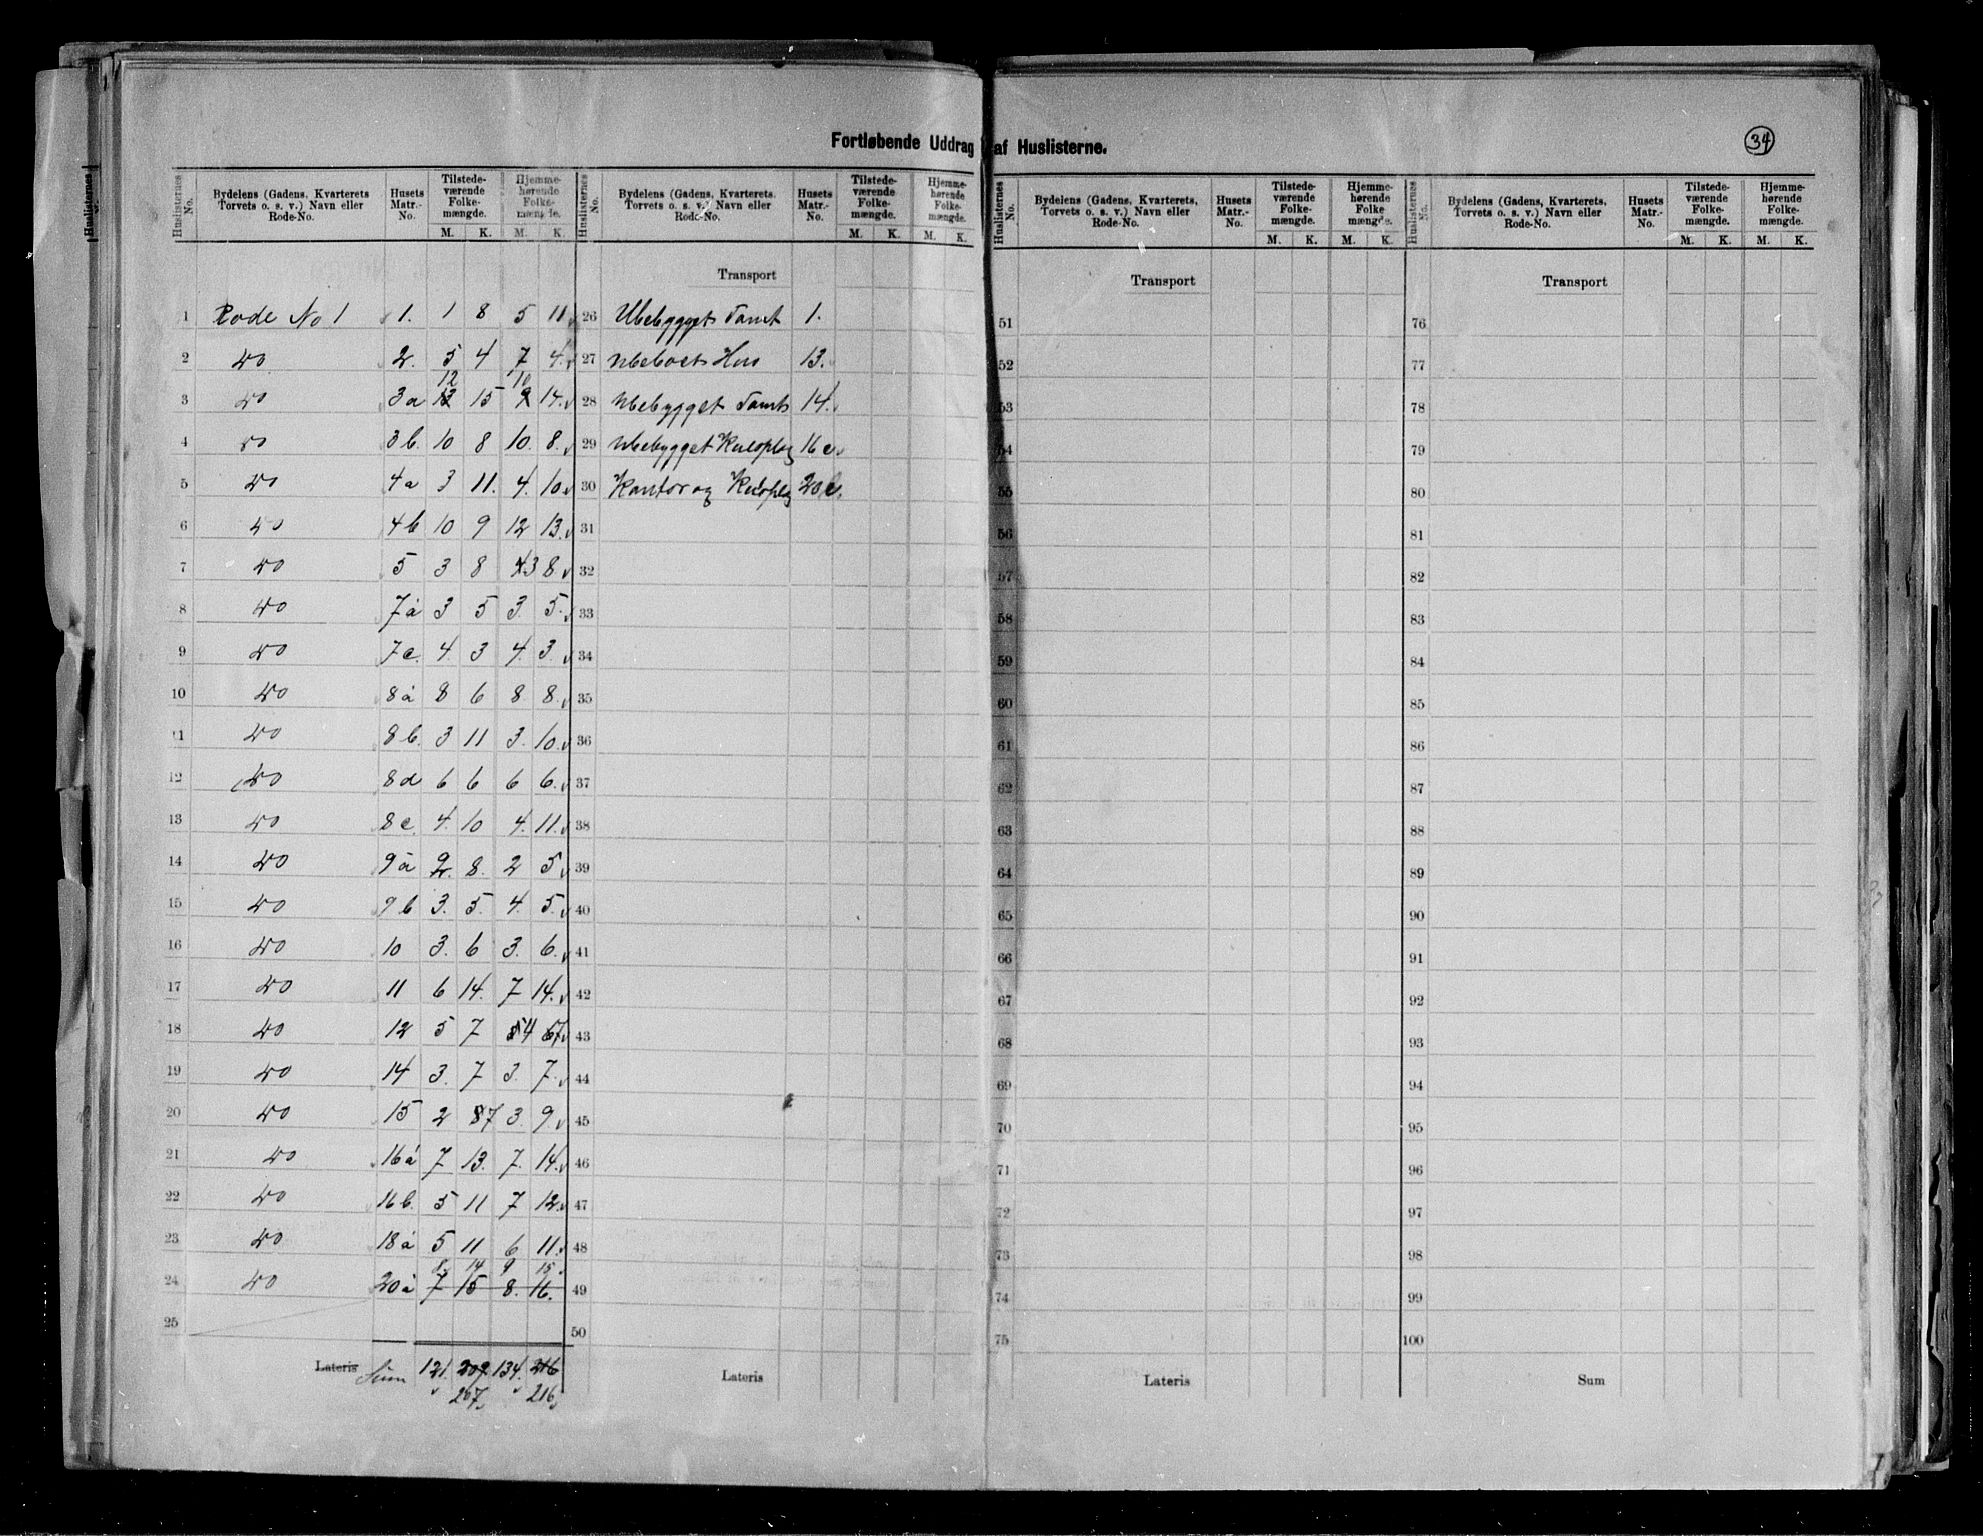 Fortløbende Uddrag af Huslisterne.
34
Huslisternes No. | Bydelens (Gadens, Kvarterets Torvets o. s. v.) Navn eller Rode-No. | Husets Matr.-No. | Tilstedeværende Folkemængde. M. K. | Hjemmehørende Folkemængde. M. K.
1 Rode No 1 1. 1 8 5 11
2 do 2. 5 4 7 4.
3 do 3a 13 12 15 9 10 14.
4 do 3b. 10 8 10. 8.
5 do 4a 3 11. 4. 10
6 do 4b 10 9 12 13.
7 do 5 3 8 4 3 8.
8 do 7a 3 5 3. 5.
9 do 7c. 4. 3 4. 3.
10 do 8a 8 6 8 8.
11 do 8b. 3 11 3. 10.
12 do 8d 6 6 6 6.
13 do 8c. 4. 10 4. 11.
14 do 9a 2. 8. 2 5
15 do 9b 3. 5. 4. 5.
16 do 10 3. 6 3. 6.
17 do 11 6 14. 7 14.
18 do 12 5 7 5 4 6 7
19 do 14 3. 7 3. 7.
20 do 15 2 8 7 3. 9.
21 do 16a 7 13. 7. 14.
22 do 16b. 5 11 7 12.
23 do 18a 5 11 6 11.
8 14 9 15
24 do 20a 7 15 8. 16.
25
Lateris Sum 121. 209. 134. 216
207. 216
Huslisternes No. | Bydelens (Gadens, Kvarterets. Torvets o. s. v.) Navn eller Rode-No. | Husets Matr.-No. | Tilstedeværende Folkemængde. M. K. | Hjemmehørende Folkemængde. M. K.
Transport
26 Ubebygget Tomt 1.
27 Ubeboet Hus 13.
28 Ubebygget Tomt 14.
29 Ubebygget Kuloplag 16c.
30 Kontor og Kuloplag 20b.
31
32
33
34
35
36
37
38
39
40
41
42
43
44
45
46
47
48
49
50
Lateris
Huslisternes No. | Bydelens (Gadens, Kvarterets, Torvets o. s. v.) Navn eller Rode-No. | Husets Matr.-No. | Tilstedeværende Folkemængde. M. K. | Hjemmehørende Folkemængde. M. K.
Transport
51
52
53
54
55
56
57
58
59
60
61
62
63
64
65
66
67
68
69
70
71
72
73
74
75
Lateris
Huslisternes No. | Bydelens (Gadens, Kvarterets, Torvets o. s. v.) Navn eller Rode-No. | Husets Matr.-No. | Tilstedeværende Folkemængde. M. K. | Hjemmehørende Folkemængde. M. K.
Transport
76
77
78
79
80
81
82
83
84
85
86
87
88
89
90
91
92
93
94
95
96
97
98
99
100
Sum